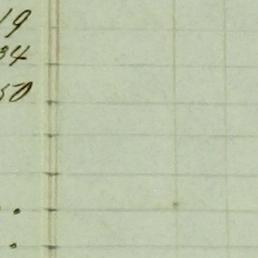 19
34
50